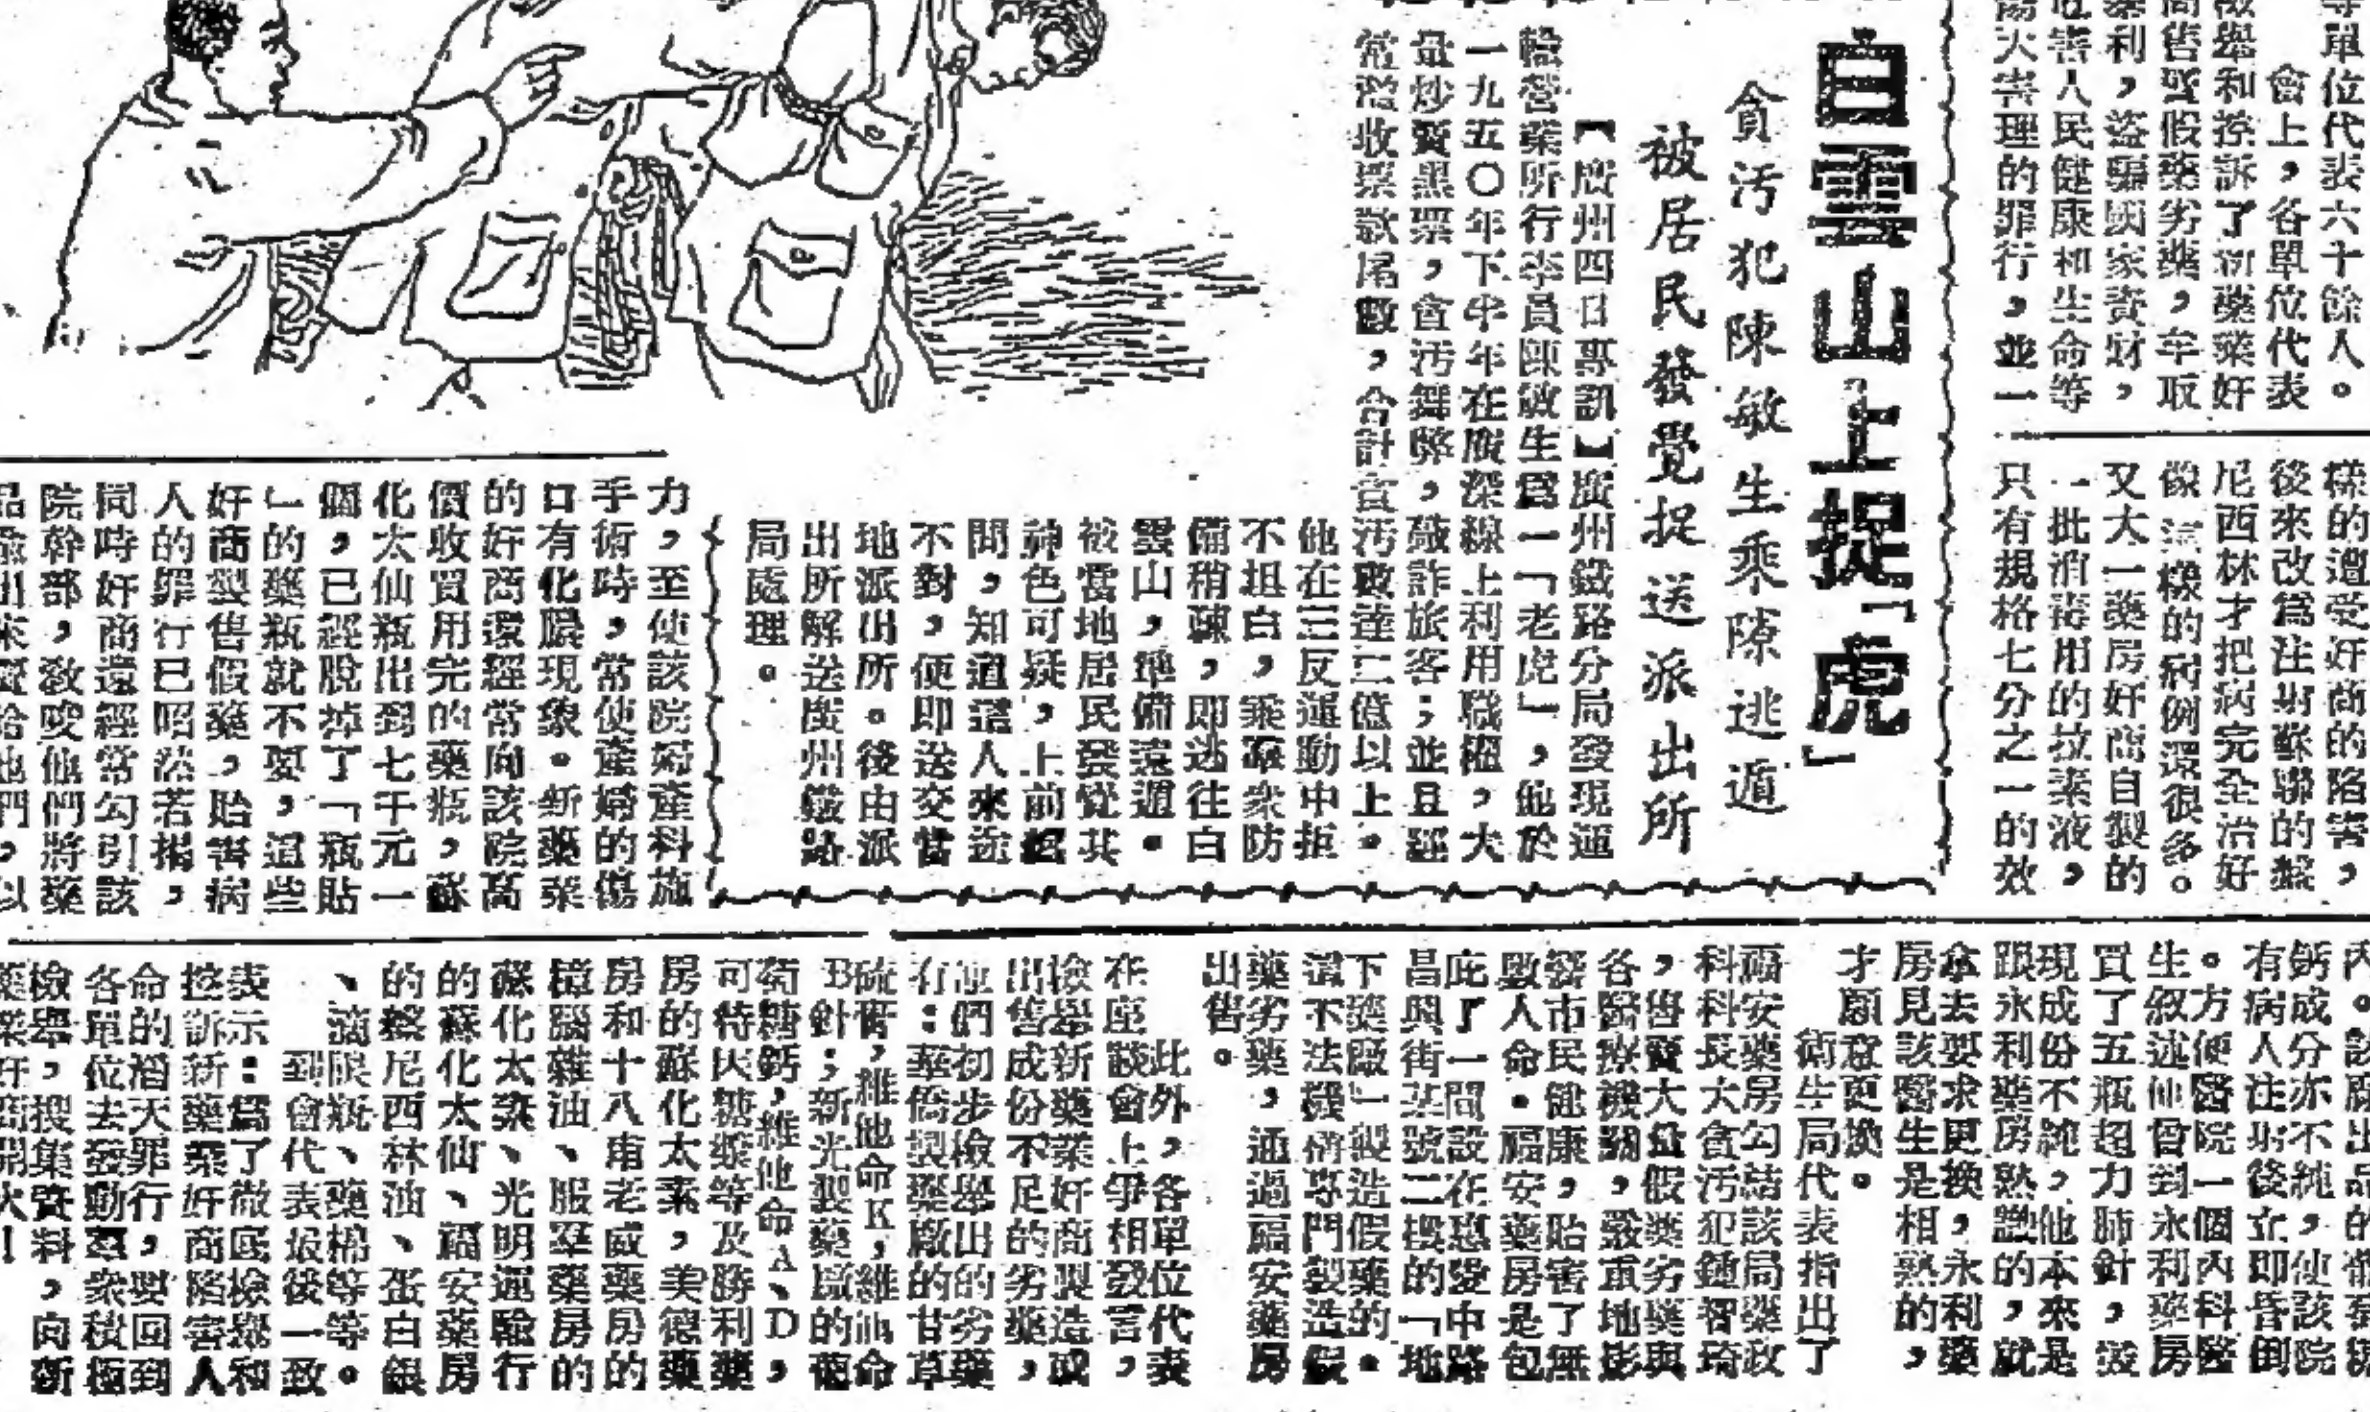 等單位代表六十餘人。
會上，各單位代表
檢舉和控訴了新藥業奸
商售賣假藥劣藥，牟取
暴利，盜騙國家資財，
危害人民健康和生命等
傷天害理的罪行，並一
樣的遭受奸商的陷害，
後來改爲注射蘇聯的盤
尼西林才把病完全治好
像這樣的病例還很多。
又大一藥房奸商自製的
一批消毒用的拉素液，
只有規格七分之一的效
白雲山上捉「虎」
貪污犯陳敏生乘隙逃遁
被居民發覺捉送派出所
【廣州四日專訊】廣州鐵路分局發現運
輸營業所行李員陳敏生爲一「老虎」，他於
一九五〇年下半年在廣深線上利用職權，大
量炒賣黑票，貪污舞弊，敲詐旅客；並且經
常濫收票款尾數，合計貪污數達二億以上。
他在三反運動中拒
不坦白，乘羣衆防
備稍疎，即逃往白
雲山，準備遠遁。
被當地居民發覺其
神色可疑，上前盤
問，知道這人來途
不對，便即送交當
地派出所。後由派
出所解送廣州鐵路
局處理。
力，至使該院婦產科施
手術時，常使產婦的傷
口有化膿現象。新藥業
的奸商還經常向該院高
價收買用完的藥瓶，蘇
化太仙瓶出到七千元一
個，已經脫掉了「瓶貼
」的藥瓶就不要，這些
奸商製售假藥，貽害病
人的罪行已昭然若揭，
同時奸商還經常勾引該
院幹部，教唆他們將藥
品偷出來賣給他們，以
內。該廠出品的葡萄糖
鈣成分亦不純，使該院
有病人注射後立即昏倒
。方便醫院一個內科醫
生叙述他曾到永利藥房
買了五瓶超力肺針，發
現成份不純，他本來是
跟永利藥房熟識的，就
拿去要求更換，永利藥
房見該醫生是相熟的，
才願意更換。
衛生局代表指出了
福安藥房勾結該局藥政
科科長大貪污犯鍾智琦
，售賣大量假藥劣藥與
各醫療機關，嚴重地影
響市民健康，貽害了無
數人命。福安藥房是包
庇了一間設在惠愛中路
昌興街某號二樓的「地
下藥廠」製造假藥的。
這不法機構專門製造假
藥劣藥，通過福安藥房
出售。
此外，各單位代表
在座談會上爭相發言，
檢舉新藥業奸商製造或
出售成份不足的劣藥，
他們初步檢舉出的劣藥
有：華僑製藥廠的甘草
硫膏，維他命K，維他命
B針；新光製藥廠的葡
萄糖鈣，維他命A、D，
可特因糖漿等及勝利藥
房的蘇化太素，美德藥
房和十八甫老威藥房的
樟腦雜油、服羣藥房的
蘇化太素、光明運輸行
的蘇化太仙、福安藥房
的盤尼西林油、蛋白銀
、滴眼瓶、藥棉等等。
到會代表最後一致
表示：爲了徹底檢舉和
控訴新藥業奸商陷害人
命的滔天罪行，要回到
各單位去發動羣衆積極
檢舉，搜集資料，向新
藥業奸商開火！